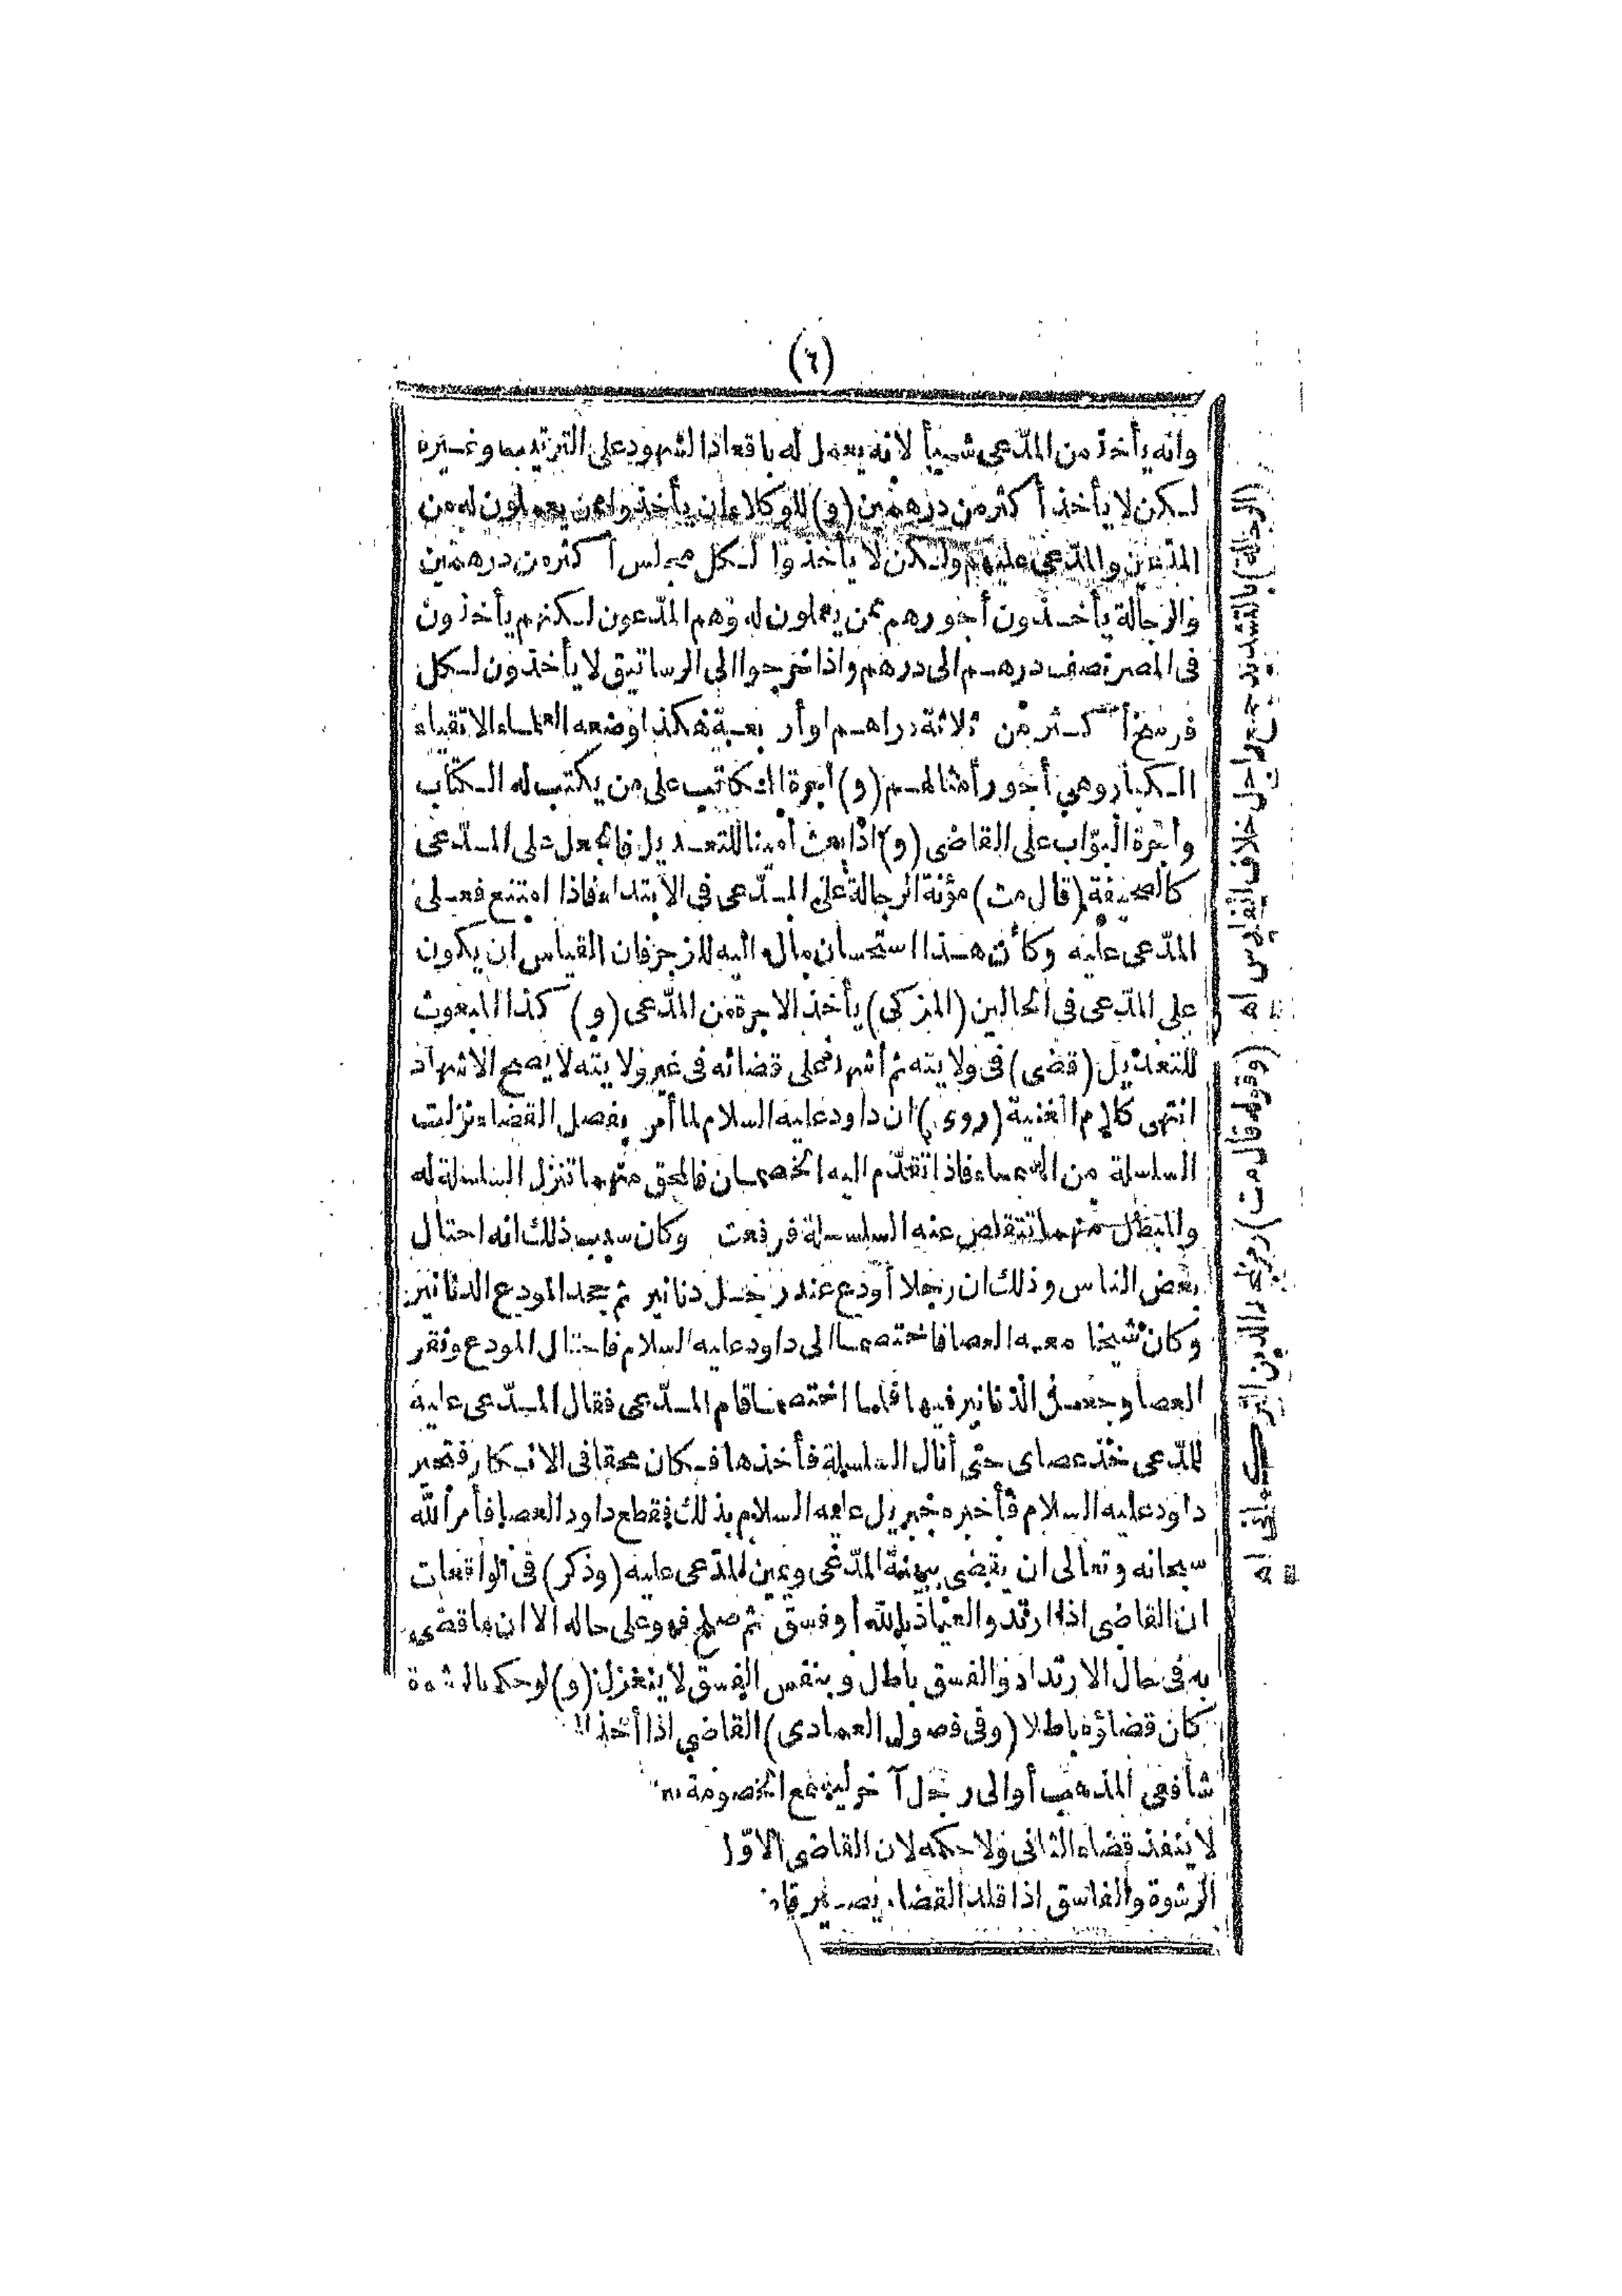 (٦)
وانه يأخذ من المدّعى شيأ لانه يعمل له باقعاد الشهود على الترتيب وغيره
لكن لا يأخذ أكثر من درهمين (و) للوكلاء ان يأخذوا ممن يعملون له من
المدّعين والمدّعى عليهم ولكن لا يأخذوا لكل مجلس أكثر من درهمين
والرجالة يأخذون أجورهم ممن يعملون له وهم المدّعون لكنهم يأخذون
فى المصر نصف درهم الى درهم واذا خرجوا الى الرساتيق لا يأخذون لكل
فرسخ أكثر من ثلاثة دراهم اوأربعة هكذا وضعه العلماء الاتقياء
الكبار وهى أجور أمثالهم (و) اجرة الكاتب على من يكتب له الكتاب
وأجرة البوّاب على القاضى (و) اذا بعث أمينا للتعديل فالجعل على المدّعى
كالصحيفة (قال مت) مؤنة الرجالة على المدّعى فى الابتداء فاذا امتنع فعلى
المدّعى عليه وكأن هذا استحسان مال اليه للزجر فان القياس ان يكون
على المدّعى فى الحالين (المزكى) يأخذ الاجرة من المدّعى (و) كذا المبعوث
للتعديل (قضى) فى ولايته ثم أشهد على قضائه فى غير ولايته لا يصح الاشهاد
انتهى كلام الغنية (روى) ان داود عليه السلام لما أمر بفصل القضاء نزلت
السلسلة من السماء فاذا تقدّم اليه الخصمان فالمحق منهما تنزل السلسلة له
والمبطل منهما تتقلص عنه السلسلة فرفعت وكان سبب ذلك انه احتال
بعض الناس وذلك ان رجلا أودع عند رجل دنانير ثم جحد المودع الدنانير
وكان شيخا معه العصا فاختصما الى داود عليه السلام فاحتال المودع ونقر
العصا وجعل الدنانير فيها فلما اختصما قام المدّعى فقال المدّعى عليه
للمدّعى خذ عصاى حتى أنال السلسلة فأخذها فكان محقا فى الانكار فتحير
داود عليه السلام فأخبره جبريل عليه السلام بذلك فقطع داود العصا فأمر الله
سبحانه وتعالى ان يقضى ببينة المدّعى ويمين المدّعى عليه (وذكر) فى الواقعات
ان القاضى اذا ارتد والعياذ بالله أو فسق ثم صلح فهو على حاله الا ان ما قضى
به فى حال الارتداد والفسق باطل وبنفس الفسق لا ينعزل (و) لو حكم بالرشوة
كان قضاؤه باطلا (وفى فصول العمادى) القاضى اذا أخذ
شافعى المذهب أوالى رجل آخر ليسمع الخصومة
لا ينفذ قضاء الثانى ولا حكمه لان القاضى الاوّل
الرشوة والفاسق اذا قلد القضاء يصير
(الرجالة) بالتشديد جمع راجل خلاف الفارس اه
(وقوله قال مت) رمز مجد الدين الترجمانى اه